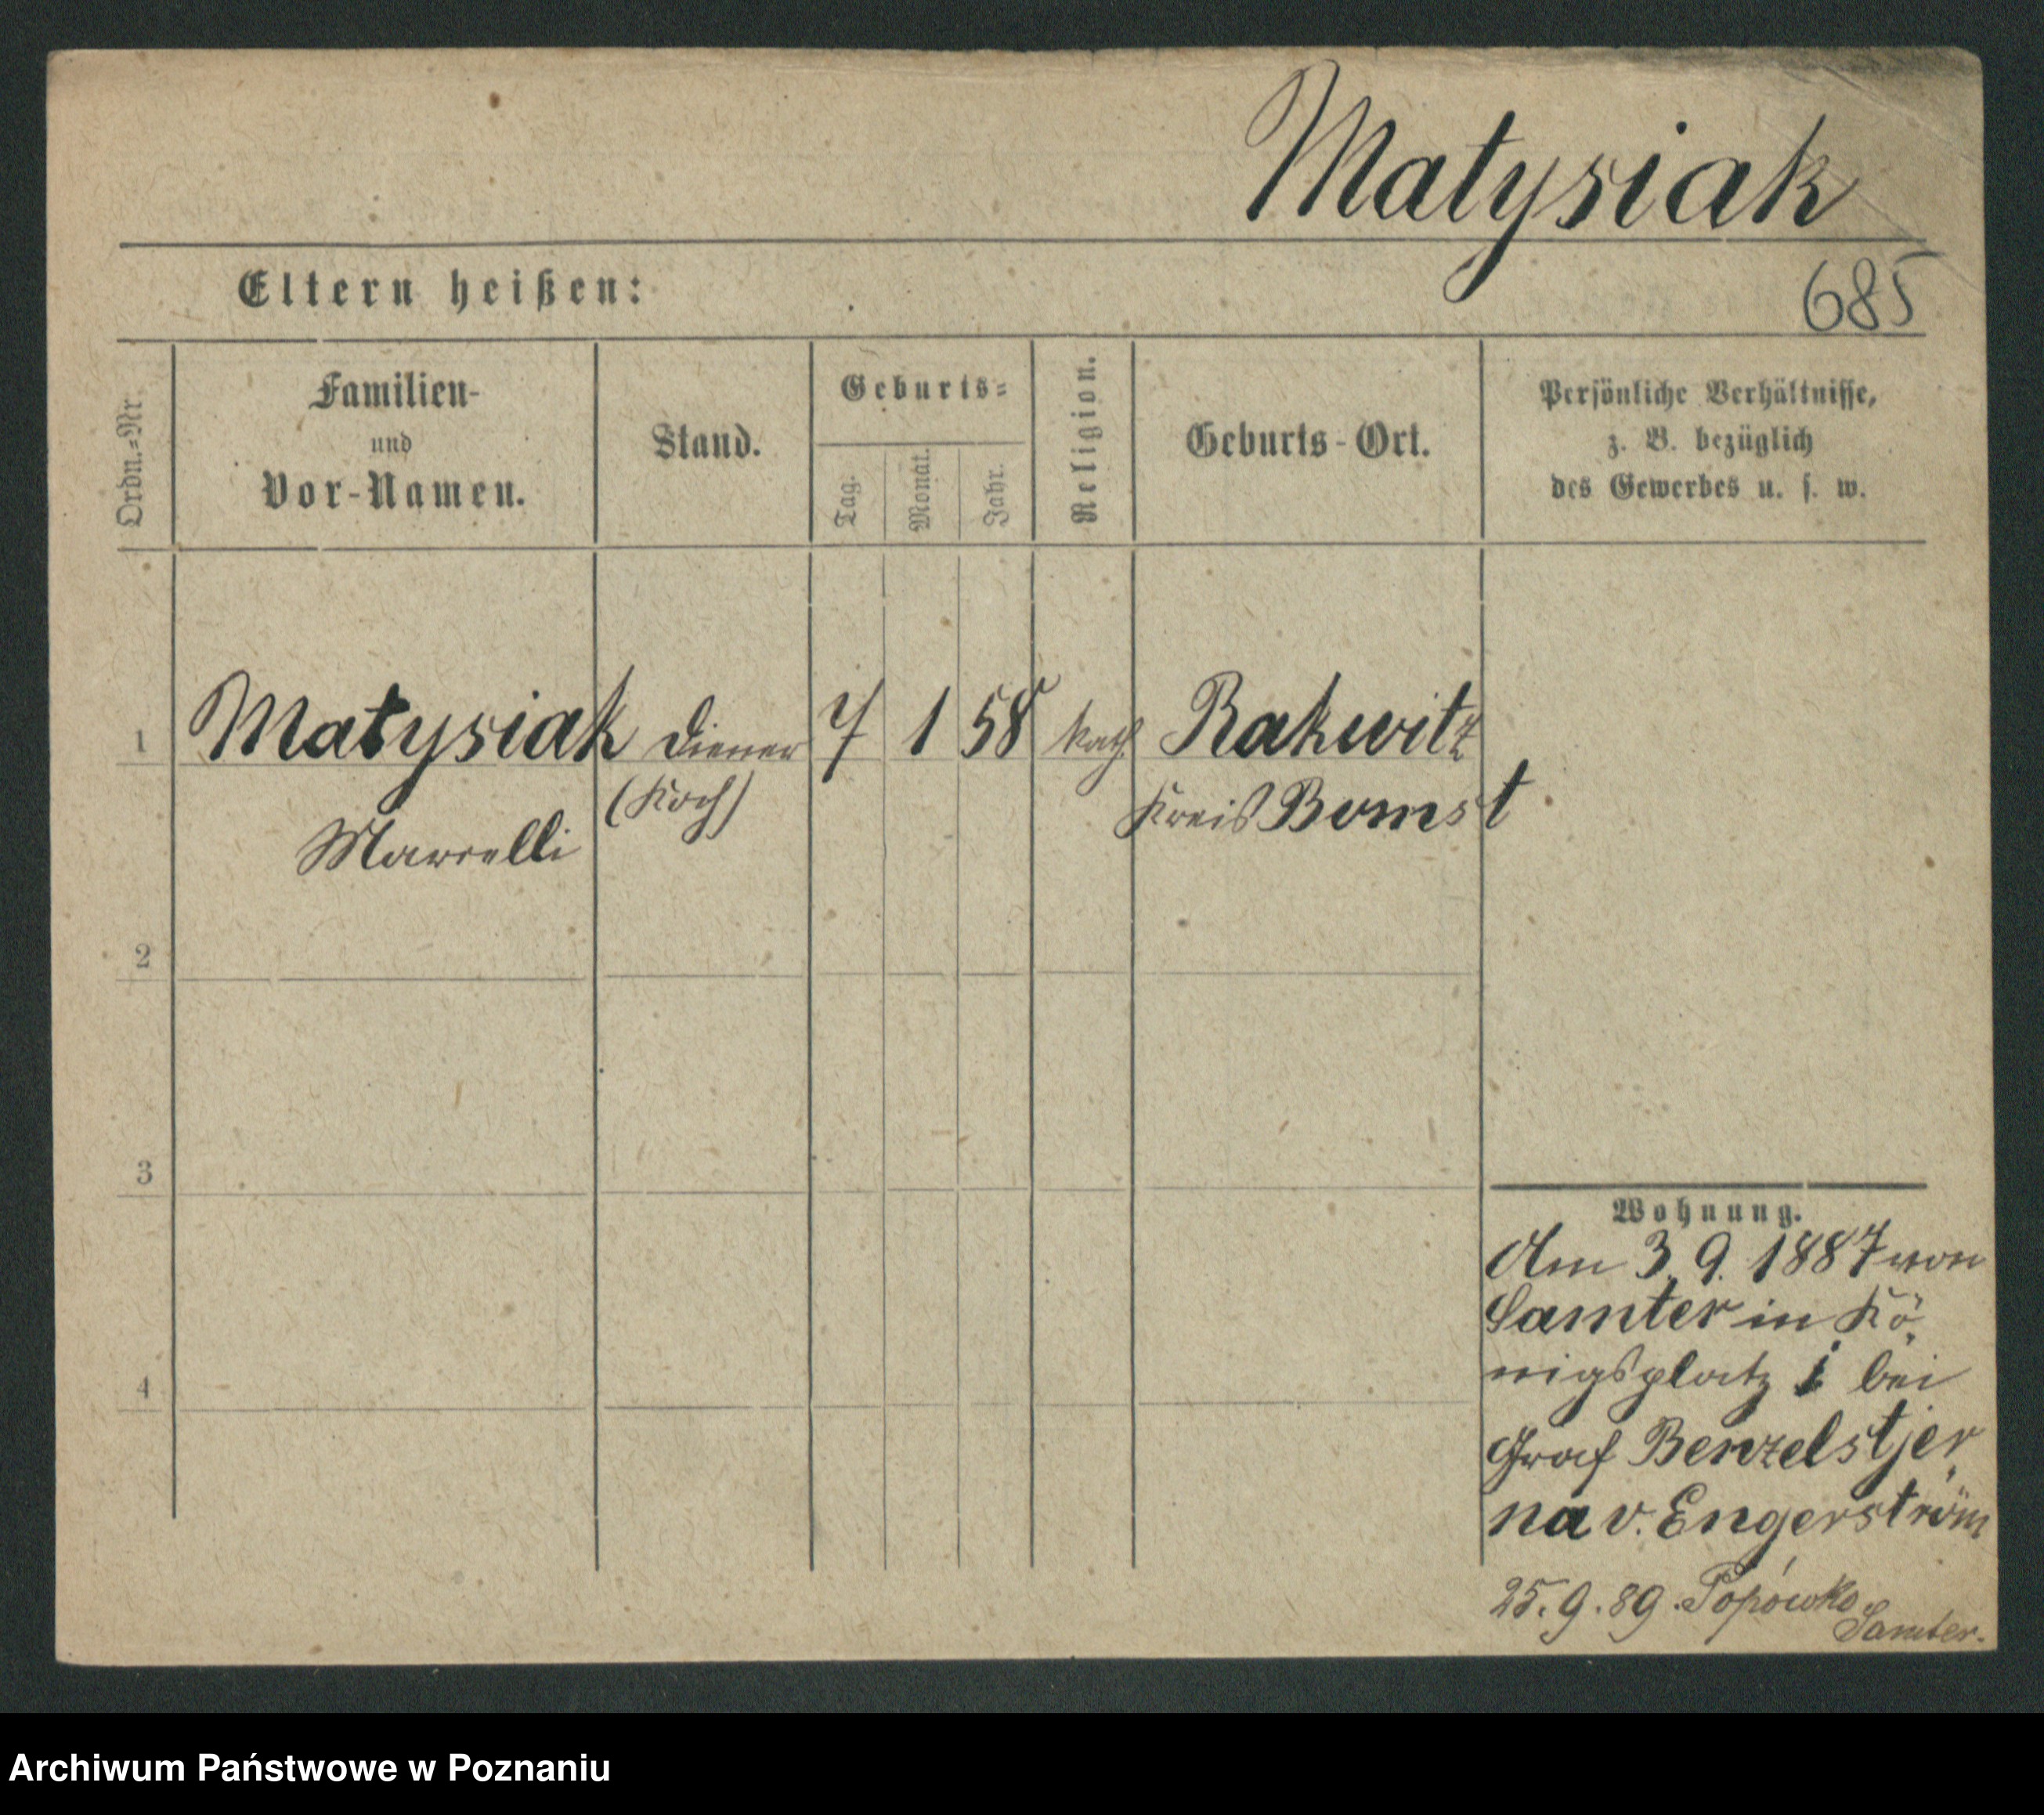 Matysiak
685
Eltern heißen:
Ordn.=Nr.
Familien-
und
Vor-Namen.
Stand.
Geburts=
Tag.
Monat.
Jahr.
Religion.
Geburts-Ort.
Persönliche Verhältnisse,
z. B. bezüglich
des Gewerbes u. s. w.
1 Matysiak Diener 7 1 58 kath. Rakwitz
(Koch) Kreis Bomst
Marcelli
2
3
4
Wohnung.
Am 3. 9. 1887 von
Samter in Kö-
nigsplatz 1 bei
Graf Benzelstjer
na v. Engerström
25.9.89. Popówko
Samter.
Archiwum Państwowe w Poznaniu